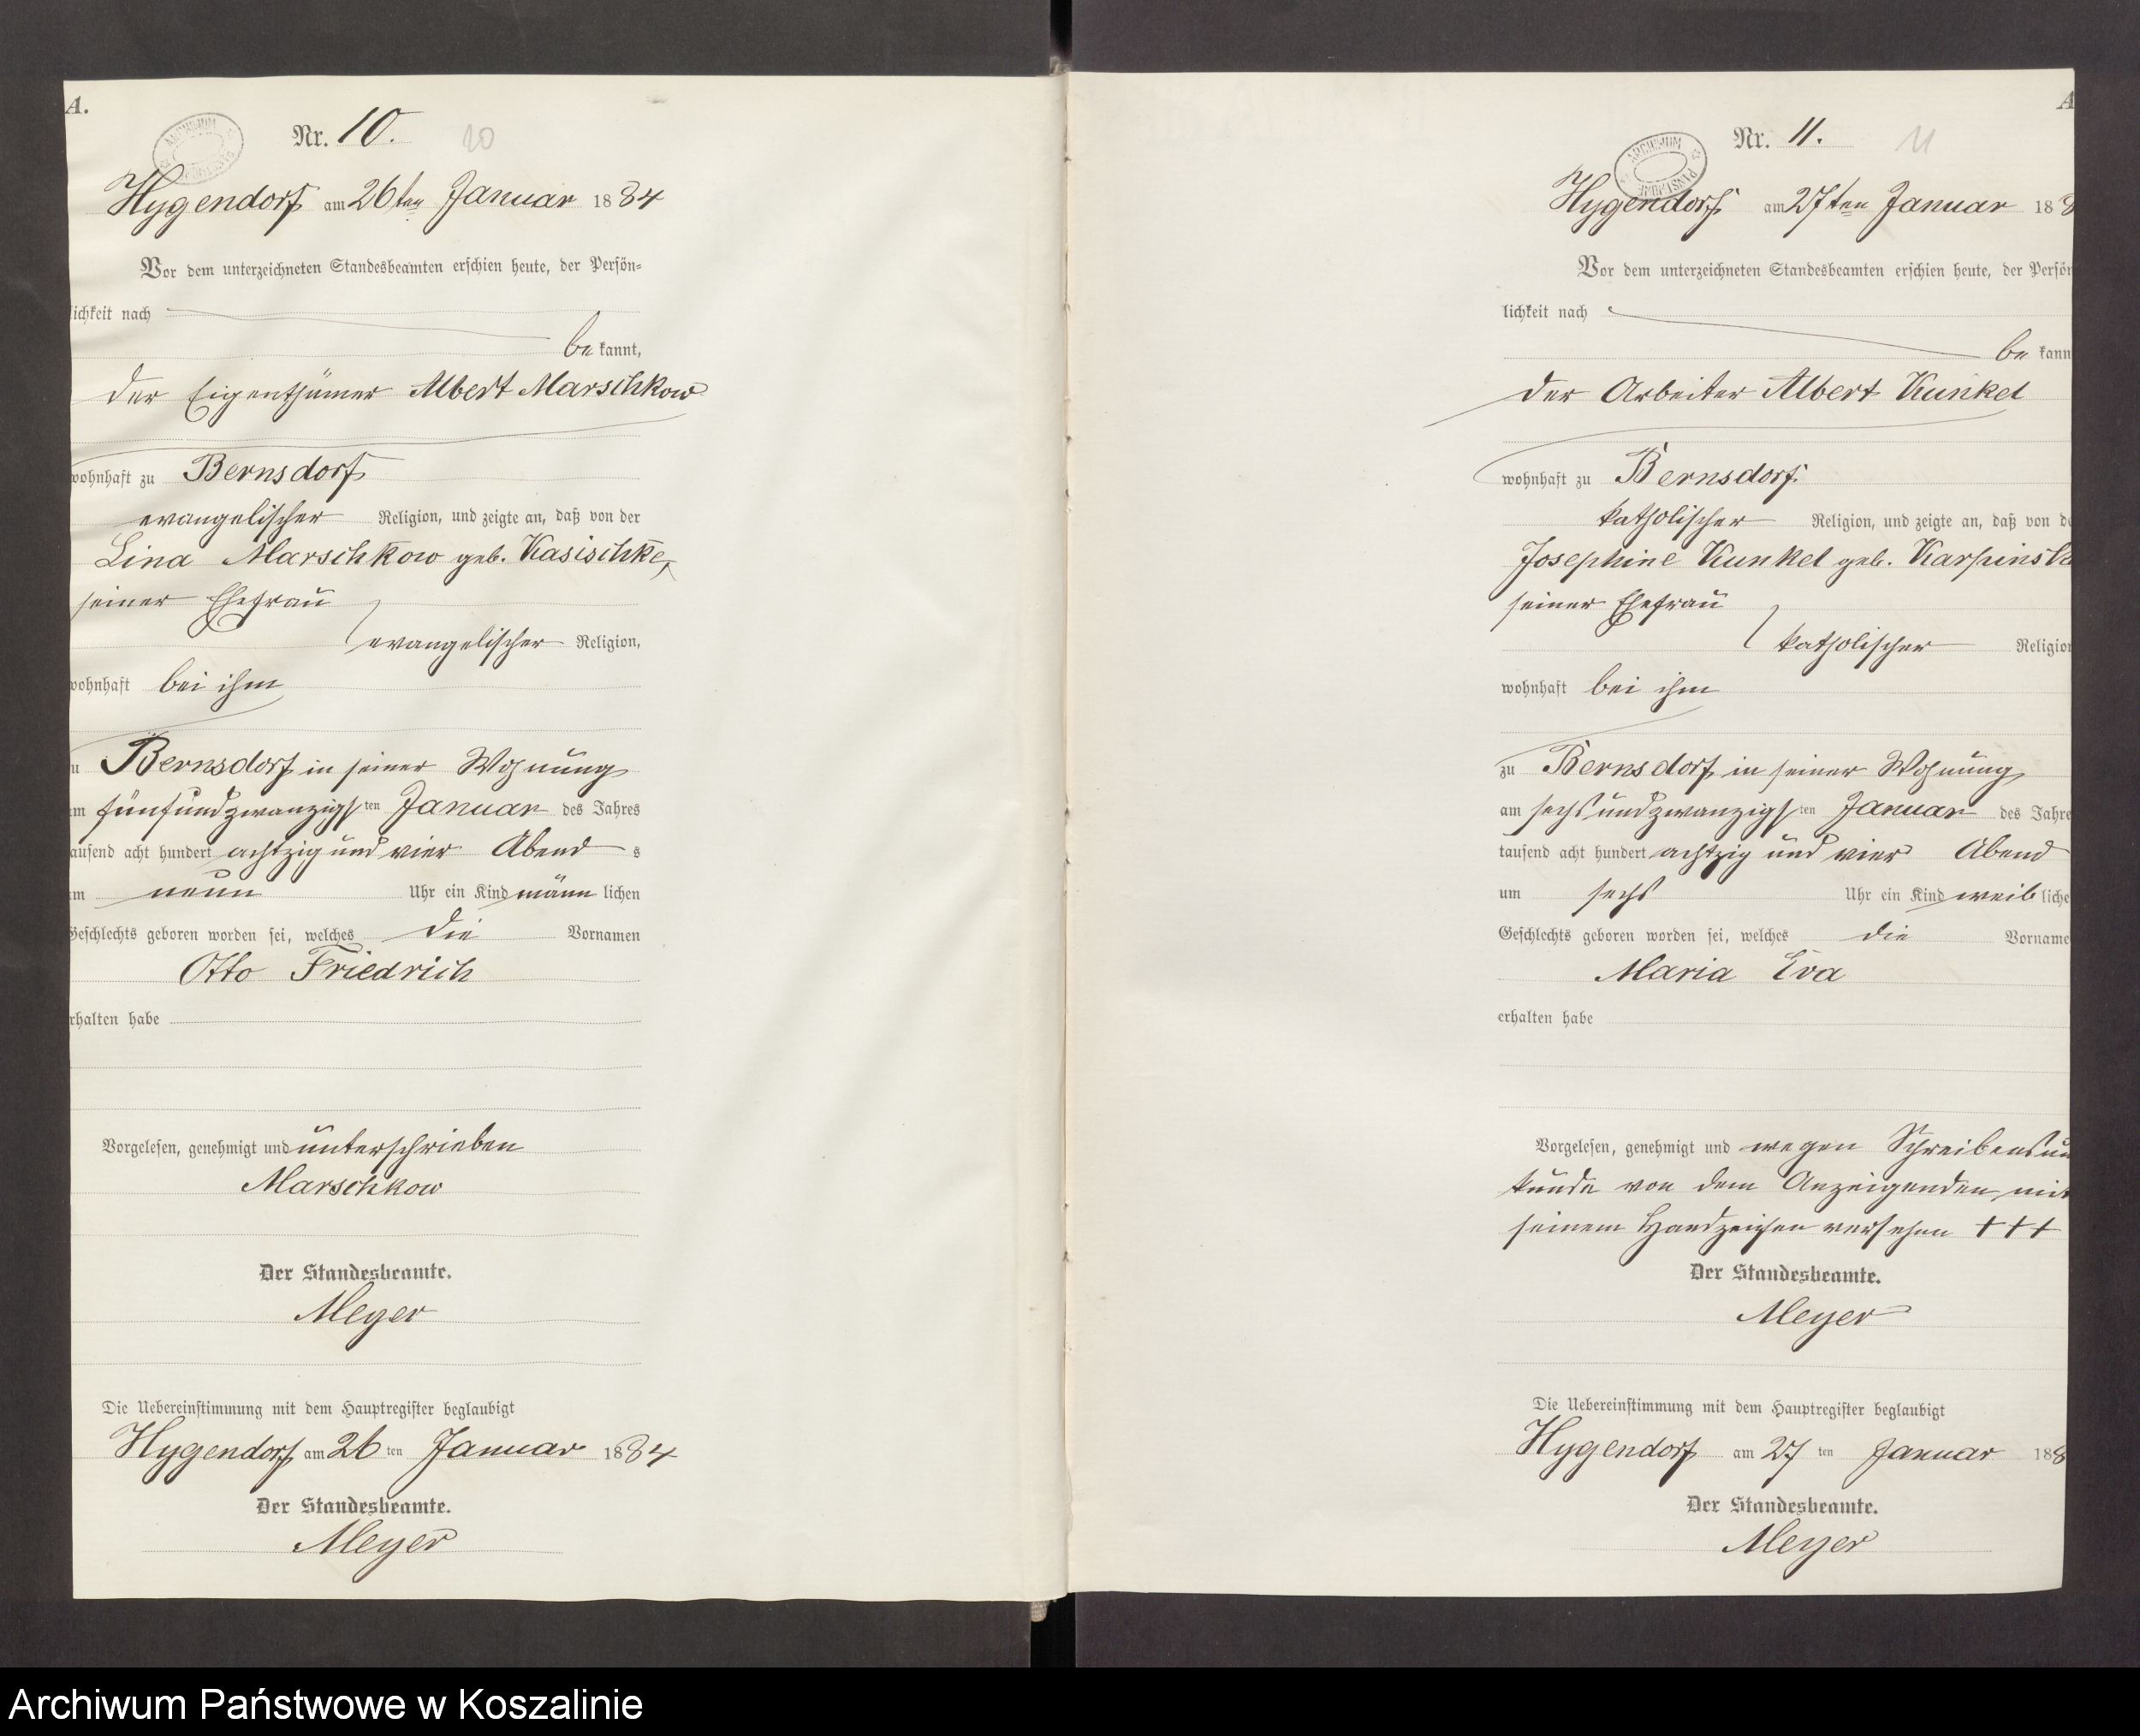 A.
ARCHIWUM
Nr. 10. 10
Hygendorf am 26ten Januar 1884
Vor dem unterzeichneten Standesbeamten erschien heute, der Persön=
lichkeit nach
bekannt,
der Eigenthümer Albert Marschkow
wohnhaft zu Bernsdorf
evangelischer Religion, und zeigte an, daß von der
Lina Marschkow geb. Kasischke,
seiner Ehefrau
evangelischer Religion,
wohnhaft bei ihm
zu Bernsdorf in seiner Wohnung
am fünfundzwanzigsten Januar des Jahres
tausend acht hundert achtzig und vier Abends
um neun Uhr ein Kind männlichen
Geschlechts geboren worden sei, welches die Vornamen
Otto Friedrich
erhalten habe
Vorgelesen, genehmigt und unterschrieben
Marschkow
Der Standesbeamte.
Meyer
Die Uebereinstimmung mit dem Hauptregister beglaubigt
Hygendorf am 26ten Januar 1884
Der Standesbeamte.
Meyer
A
ARCHIWUM PAŃSTWOWE
Nr. 11. 11
Hygendorf am 27ten Januar 188
Vor dem unterzeichneten Standesbeamten erschien heute, der Persön
lichkeit nach
bekann
der Arbeiter Albert Kunkel
wohnhaft zu Bernsdorf
katholischer Religion, und zeigte an, daß von de
Josephine Kunkel geb. Karpinsk
seiner Ehefrau
katholischer Religion
wohnhaft bei ihm
zu Bernsdorf in seiner Wohnung
am sechsundzwanzigsten Januar des Jahre
tausend acht hundert achtzig und vier Abend
um sechs Uhr ein Kind weibliche
Geschlechts geboren worden sei, welches die Vorname
Maria Eva
erhalten habe
Vorgelesen, genehmigt und wegen Schreibensun
kunde von dem Anzeigenden mit
seinem Handzeichen versehen +++
Der Standesbeamte.
Meyer
Die Uebereinstimmung mit dem Hauptregister beglaubigt
Hygendorf am 27ten Januar 188
Der Standesbeamte.
Meyer
Archiwum Państwowe w Koszalinie